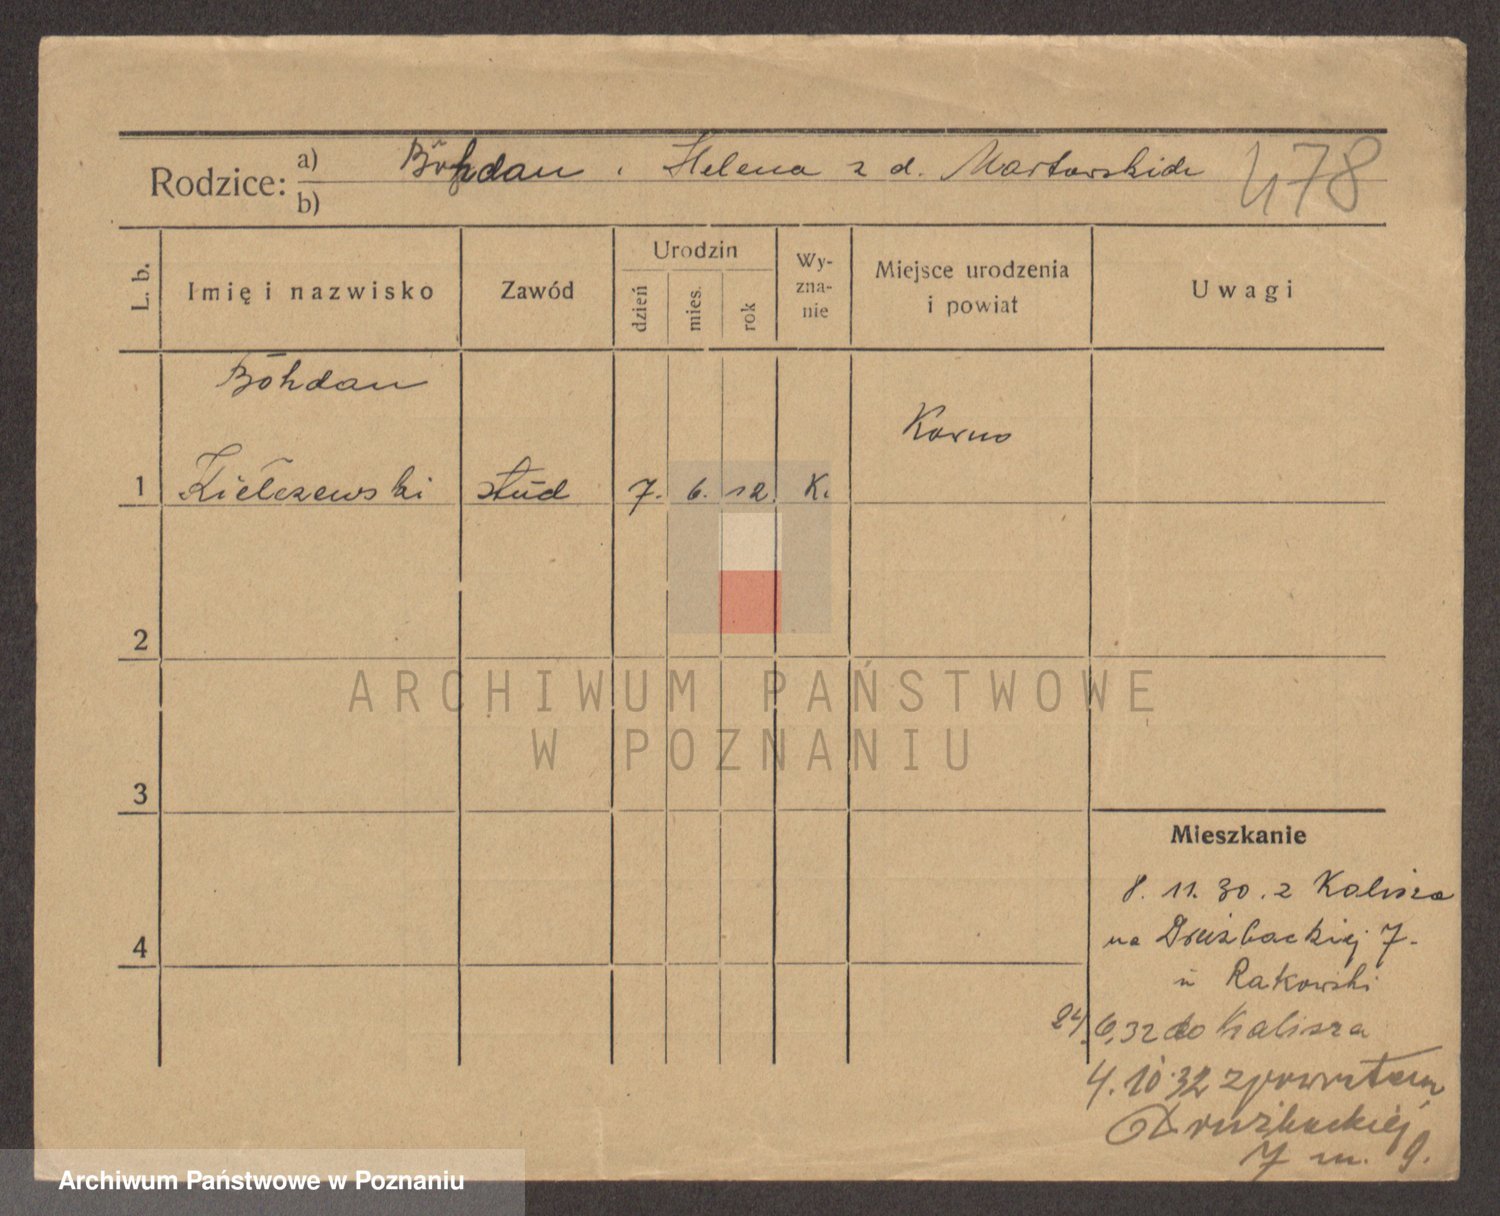 Rodzice: a) Bohdan i Helena z d. Martowskich 478
b)
L. b.
Imię i nazwisko
Zawód
Urodzin
dzień
mies.
rok
Wy-
zna-
nie
Miejsce urodzenia
i powiat
Uwagi
Bohdan
Korno
1 Kiełczewski stud 7. 6. 12. K.
2
ARCHIWUM PAŃSTWOWE
W POZNANIU
3
Mieszkanie
8. 11. 30. z Kalisza
na Drużbackiej 7.
u Rakowski
4
24/6.32 do Kalisza
4.10.32 z powrotem
Drużbackiej
7 m. 9.
Archiwum Państwowe w Poznaniu